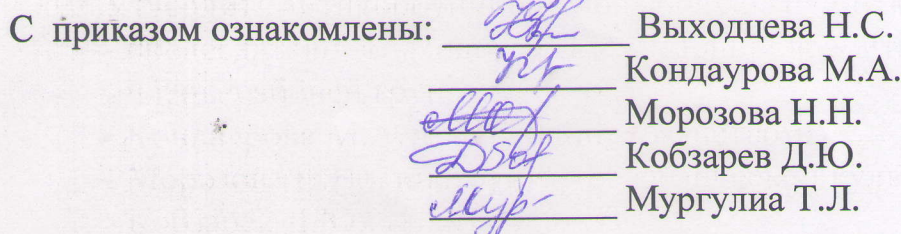 С приказом ознакомлены: Выходцева Н.С.
Кондаурова М.А.
Морозова Н.Н.
Кобзарев Д.Ю.
Мургулиа Т.Л.